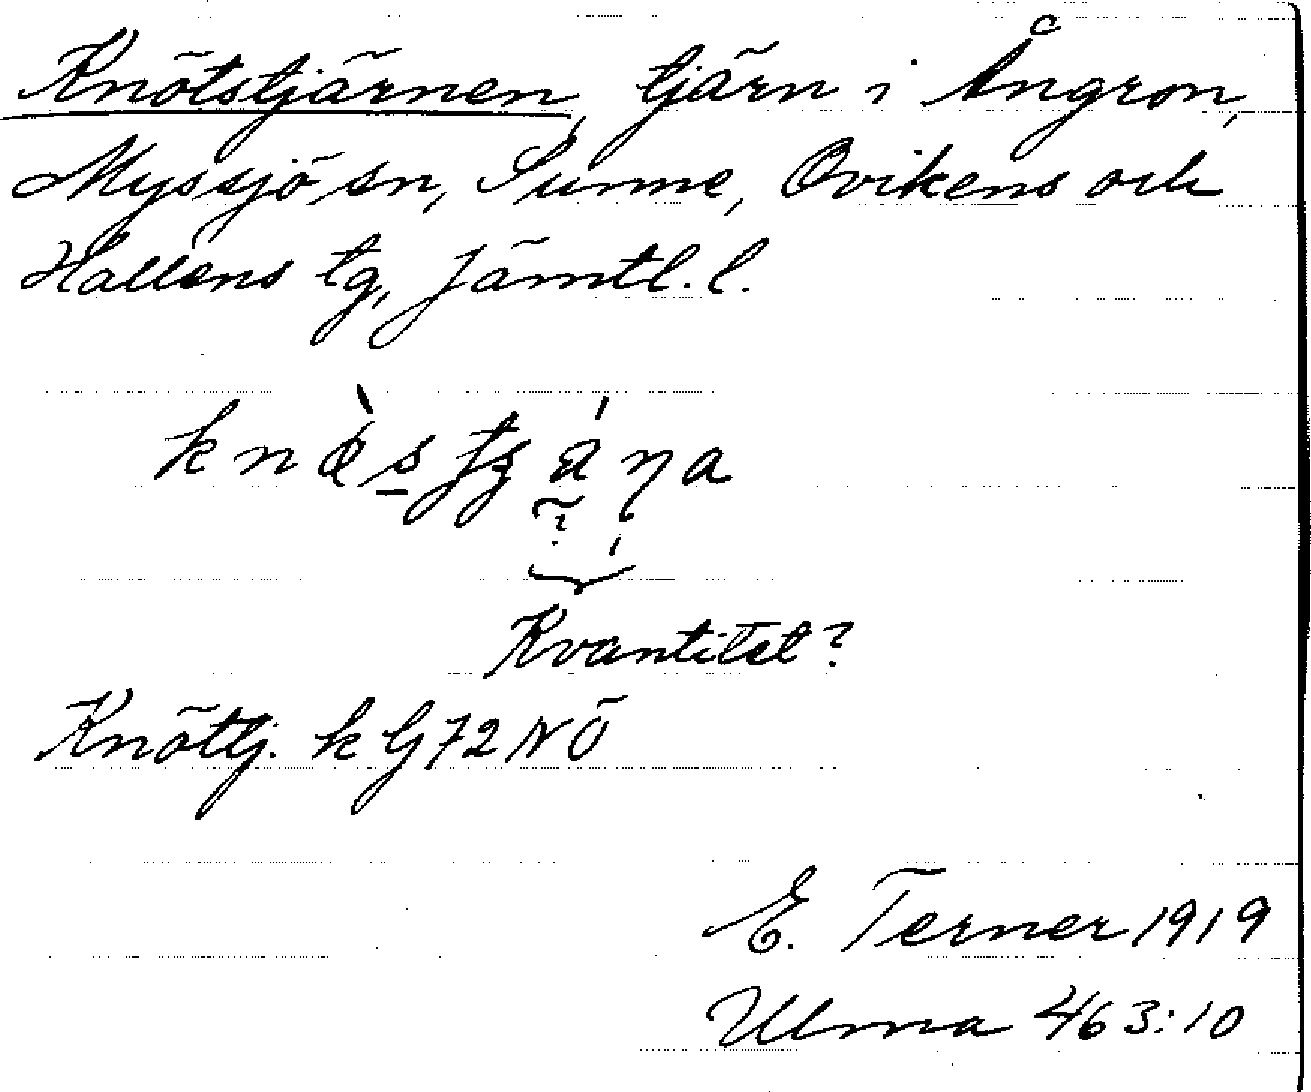 Knötstjärnen, tjärn i Ångron,
Myssjö sn, Sunne, Ovikens och
Hallens tg, Jämtl. l.
Kvantitet?
Knöttj. kG72NÖ
E. Terner 1919
Ulma 463:10